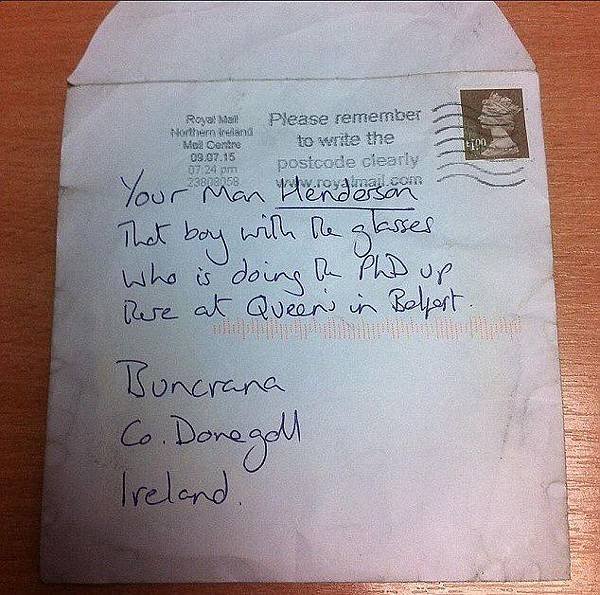 Royal Mail
Northern Ireland
Mail Centre
09.07.15
07.24 pm
23808058
Please remember
to write the
postcode clearly
www.royalmail.com
£1.00
Your Man Henderson
That boy with the glasses
who is doing the PhD up
there at Queen's in Belfast.
Buncrana
Co. Donegall
Ireland.